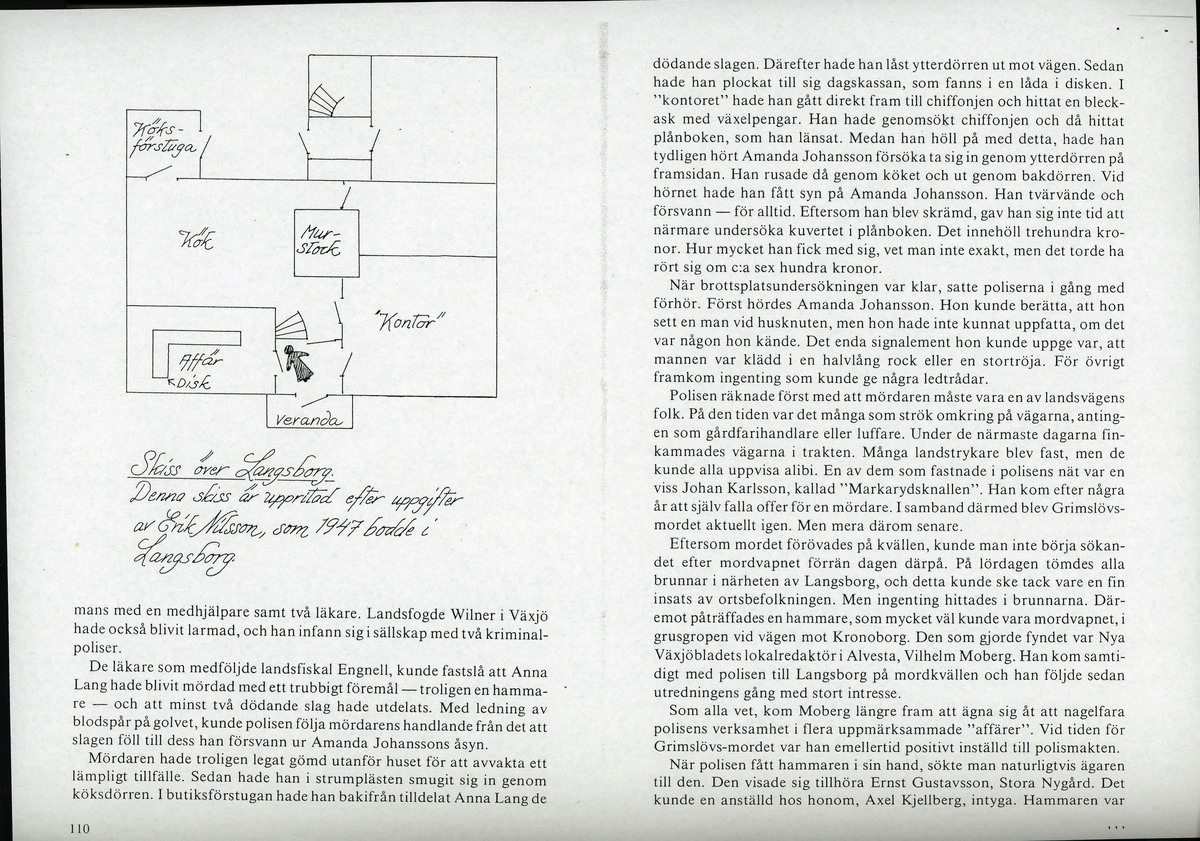 Köks-
förstuga
Kök
Mur-
stock
"Kontor"
Affär
Disk
Veranda
Skiss över Langsborg.
Denna skiss är uppritad efter uppgifter
av Erik Nilsson, som 1947 bodde i
Langsborg.
mans med en medhjälpare samt två läkare. Landsfogde Wilner i Växjö
hade också blivit larmad, och han infann sig i sällskap med två kriminal-
poliser.
De läkare som medföljde landsfiskal Engnell, kunde fastslå att Anna
Lang hade blivit mördad med ett trubbigt föremål — troligen en hamma-
re — och att minst två dödande slag hade utdelats. Med ledning av
blodspår på golvet, kunde polisen följa mördarens handlande från det att
slagen föll till dess han försvann ur Amanda Johanssons åsyn.
Mördaren hade troligen legat gömd utanför huset för att avvakta ett
lämpligt tillfälle. Sedan hade han i strumplästen smugit sig in genom
köksdörren. I butiksförstugan hade han bakifrån tilldelat Anna Lang de
110
dödande slagen. Därefter hade han låst ytterdörren ut mot vägen. Sedan
hade han plockat till sig dagskassan, som fanns i en låda i disken. I
"kontoret" hade han gått direkt fram till chiffonjen och hittat en bleck-
ask med växelpengar. Han hade genomsökt chiffonjen och då hittat
plånboken, som han länsat. Medan han höll på med detta, hade han
tydligen hört Amanda Johansson försöka ta sig in genom ytterdörren på
framsidan. Han rusade då genom köket och ut genom bakdörren. Vid
hörnet hade han fått syn på Amanda Johansson. Han tvärvände och
försvann — för alltid. Eftersom han blev skrämd, gav han sig inte tid att
närmare undersöka kuvertet i plånboken. Det innehöll trehundra kro-
nor. Hur mycket han fick med sig, vet man inte exakt, men det torde ha
rört sig om c:a sex hundra kronor.
När brottsplatsundersökningen var klar, satte poliserna i gång med
förhör. Först hördes Amanda Johansson. Hon kunde berätta, att hon
sett en man vid husknuten, men hon hade inte kunnat uppfatta, om det
var någon hon kände. Det enda signalement hon kunde uppge var, att
mannen var klädd i en halvlång rock eller en stortröja. För övrigt
framkom ingenting som kunde ge några ledtrådar.
Polisen räknade först med att mördaren måste vara en av landsvägens
folk. På den tiden var det många som strök omkring på vägarna, anting-
en som gårdfarihandlare eller luffare. Under de närmaste dagarna fin-
kammades vägarna i trakten. Många landstrykare blev fast, men de
kunde alla uppvisa alibi. En av dem som fastnade i polisens nät var en
viss Johan Karlsson, kallad "Markarydsknallen". Han kom efter några
år att själv falla offer för en mördare. I samband därmed blev Grimslövs-
mordet aktuellt igen. Men mera därom senare.
Eftersom mordet förövades på kvällen, kunde man inte börja sökan-
det efter mordvapnet förrän dagen därpå. På lördagen tömdes alla
brunnar i närheten av Langsborg, och detta kunde ske tack vare en fin
insats av ortsbefolkningen. Men ingenting hittades i brunnarna. Där-
emot påträffades en hammare, som mycket väl kunde vara mordvapnet, i
grusgropen vid vägen mot Kronoborg. Den som gjorde fyndet var Nya
Växjöbladets lokalredaktör i Alvesta, Vilhelm Moberg. Han kom samti-
digt med polisen till Langsborg på mordkvällen och han följde sedan
utredningens gång med stort intresse.
Som alla vet, kom Moberg längre fram att ägna sig åt att nagelfara
polisens verksamhet i flera uppmärksammade "affärer". Vid tiden för
Grimslövs-mordet var han emellertid positivt inställd till polismakten.
När polisen fått hammaren i sin hand, sökte man naturligtvis ägaren
till den. Den visade sig tillhöra Ernst Gustavsson, Stora Nygård. Det
kunde en anställd hos honom, Axel Kjellberg, intyga. Hammaren var